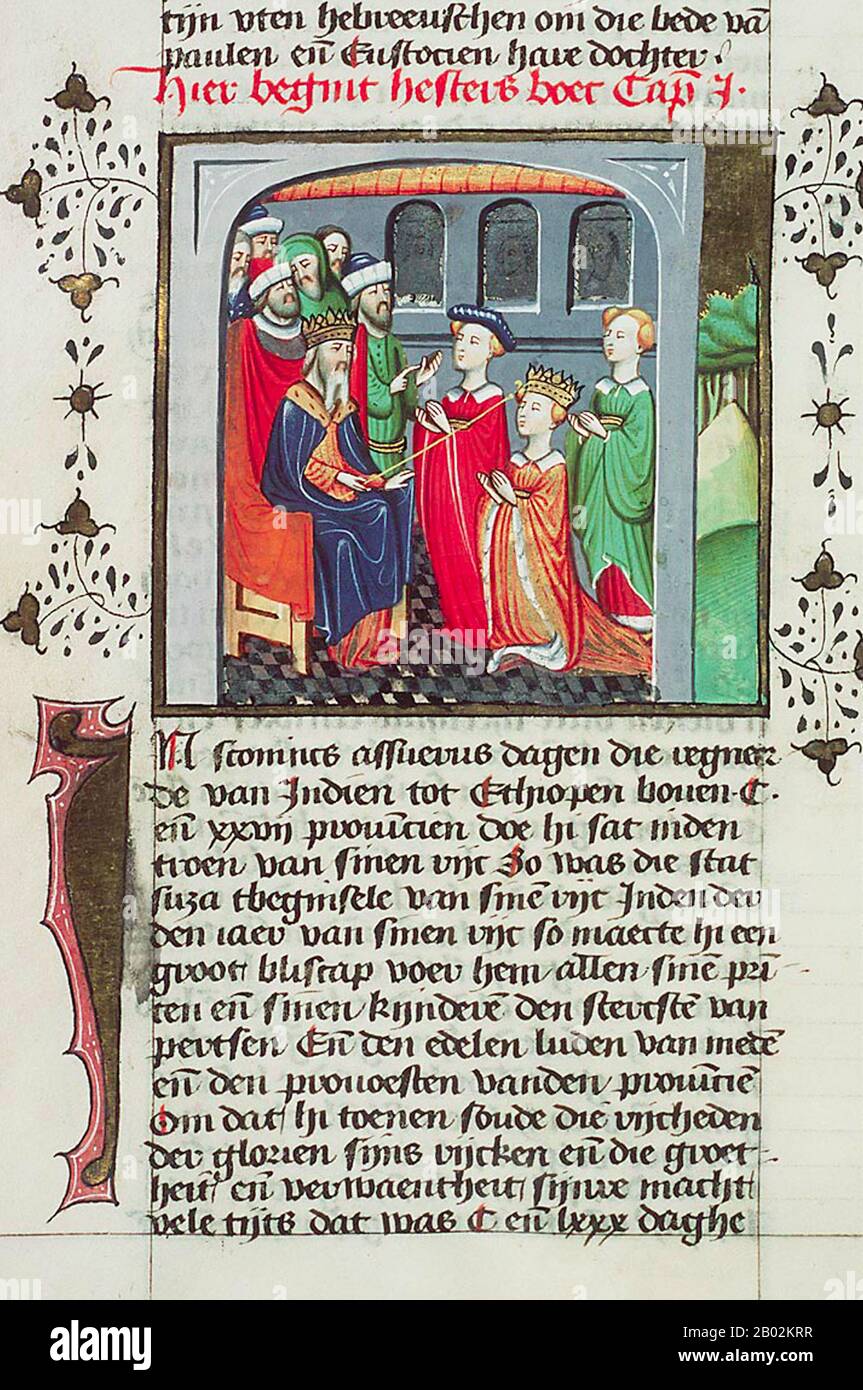 tijn vten hebreeuschen om die bede vā
paulen eñ Eustocien hare dochter
Hier begint hesters boec Cap̄ I.
IN scomincs assuerus dagen die regneer
de van Indien tot Ethiopen bouen C.
eñ xxvij prouincien doe hi sat inden
troen van sinen rijc So was die stat
suza tbeginsele van sinē rijc Inden der
den iaer van sinen rijc so maecte hi een
groot bliscap voer hem allen sinē prin
cen eñ sinen kijnderē den stercstē van
pertsen Eñ den edelen luden van medē
eñ den prouoesten vanden prouinciē
Om dat hi toenen soude die rijcheden
der glorien sijns rijcken eñ die groet
heit eñ verwaentheit sijnre macht
vele tijts dat was C eñ lxxx daghe
alamy
Image ID: 2B02KRR
www.alamy.com